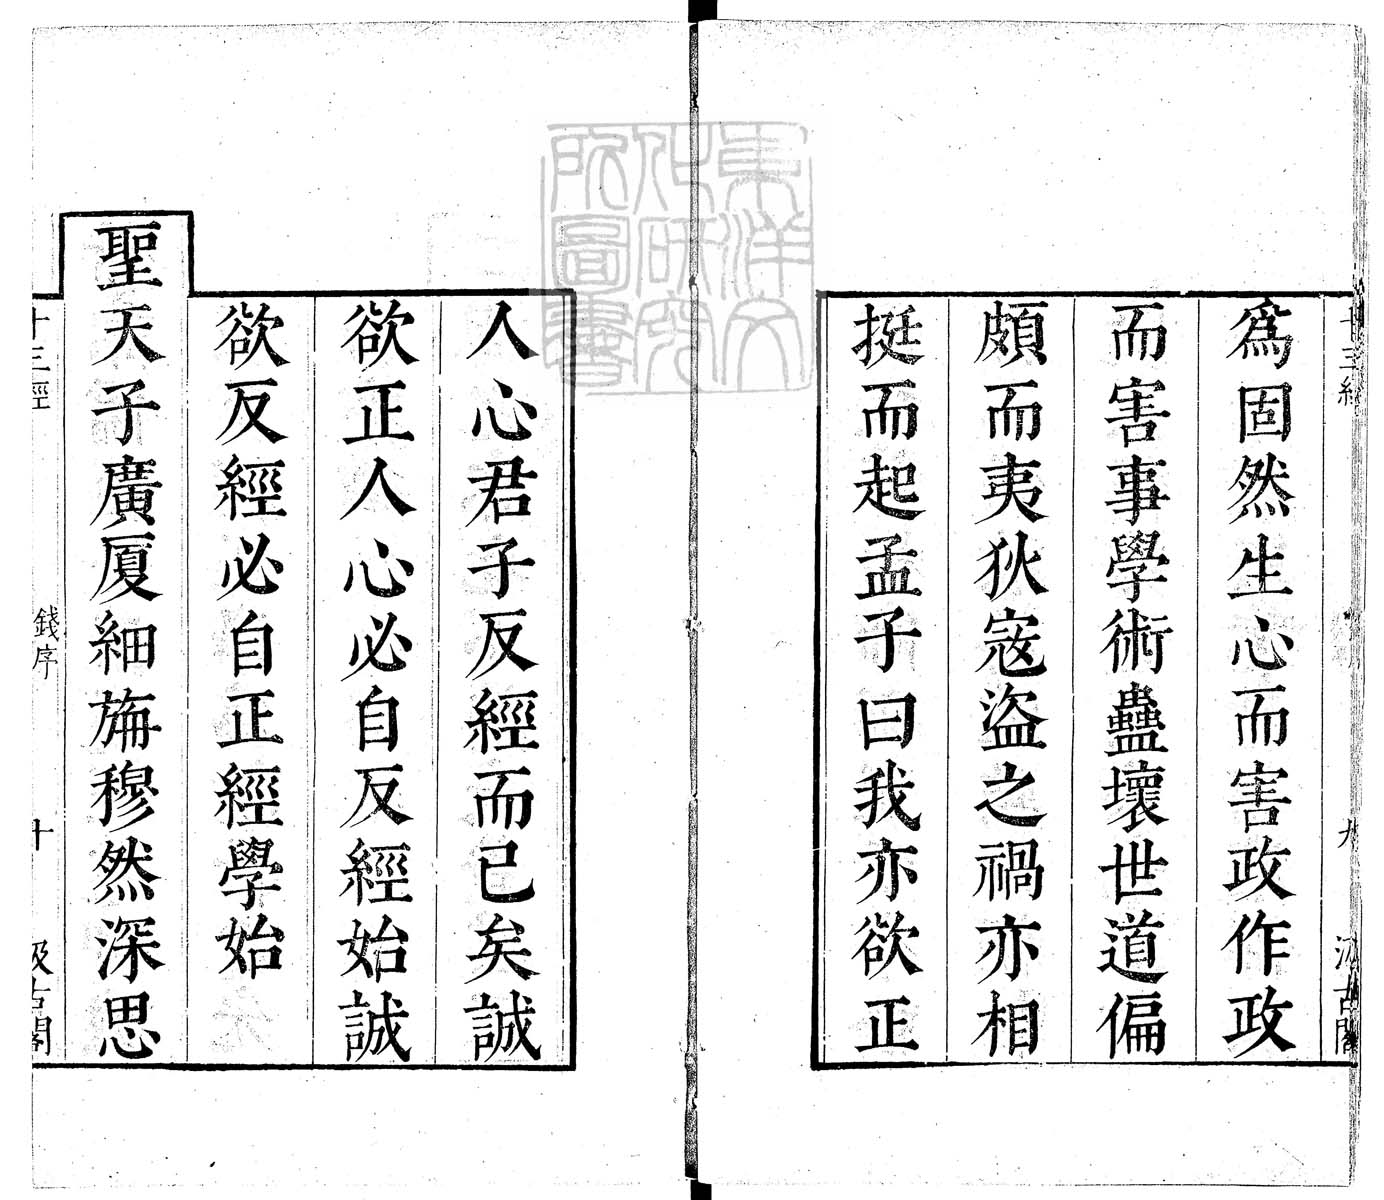 十三經
九
汲古閣
爲固然生心而害政作政
而害事學術蠱壞世道偏
頗而夷狄寇盜之禍亦相
挺而起孟子曰我亦欲正
人心君子反經而已矣誠
欲正人心必自反經始誠
欲反經必自正經學始
聖天子廣厦細旃穆然深思
十三經
錢序
十
汲古閣
東洋文
化研究
所圖書